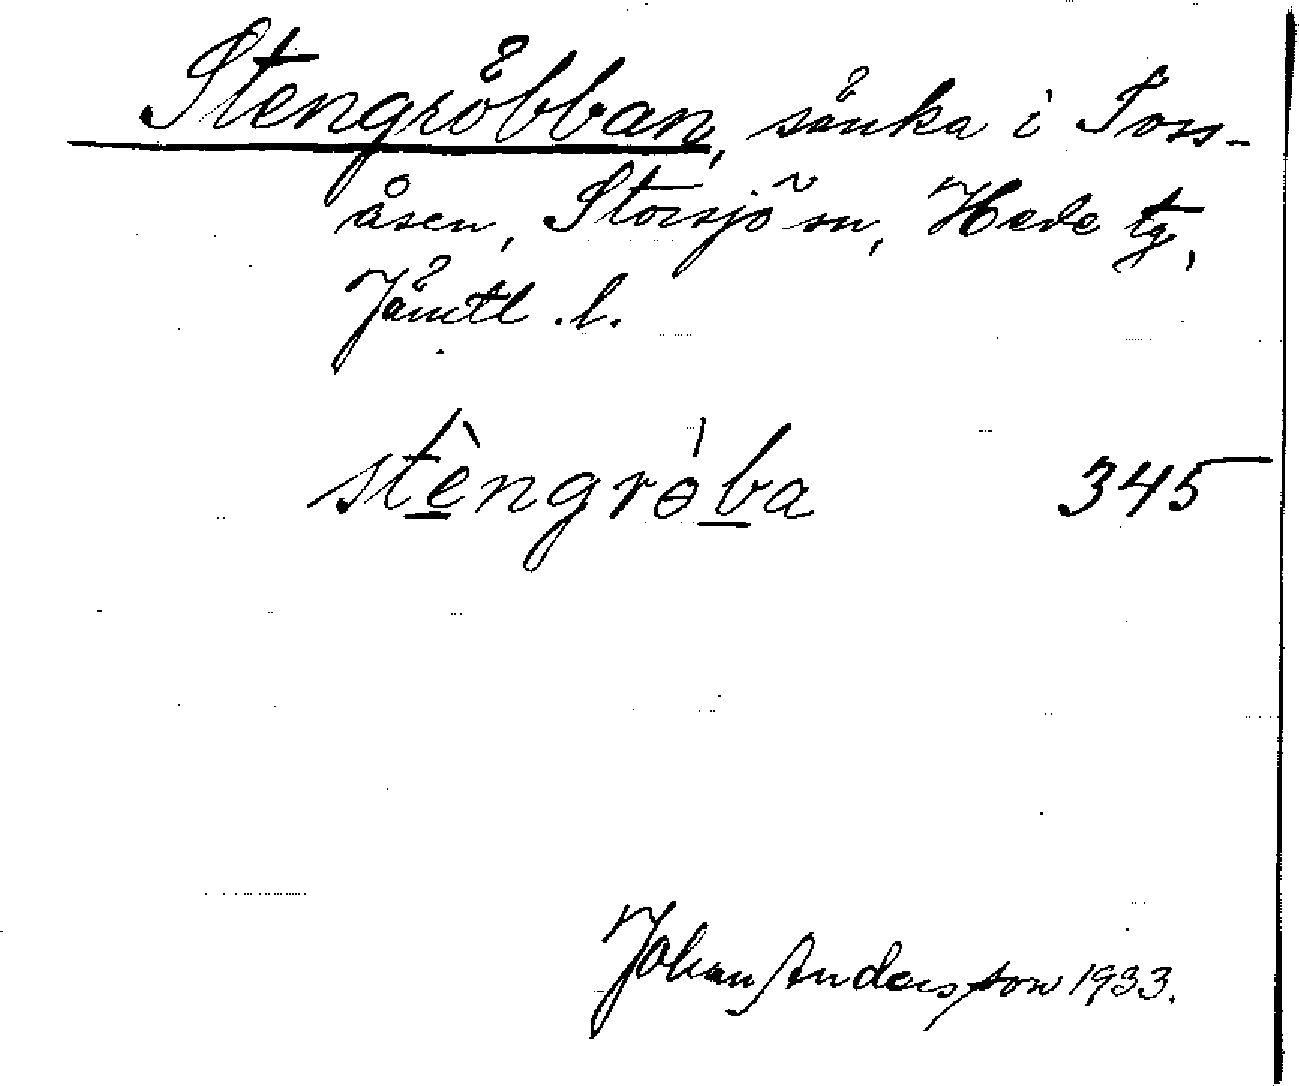 Stengröbban, sänka i Toss-
åsen, Storsjö sn, Hede tg,
Jämtl. l.
stèngrɵ́ba 345
Johan Andersson 1933.